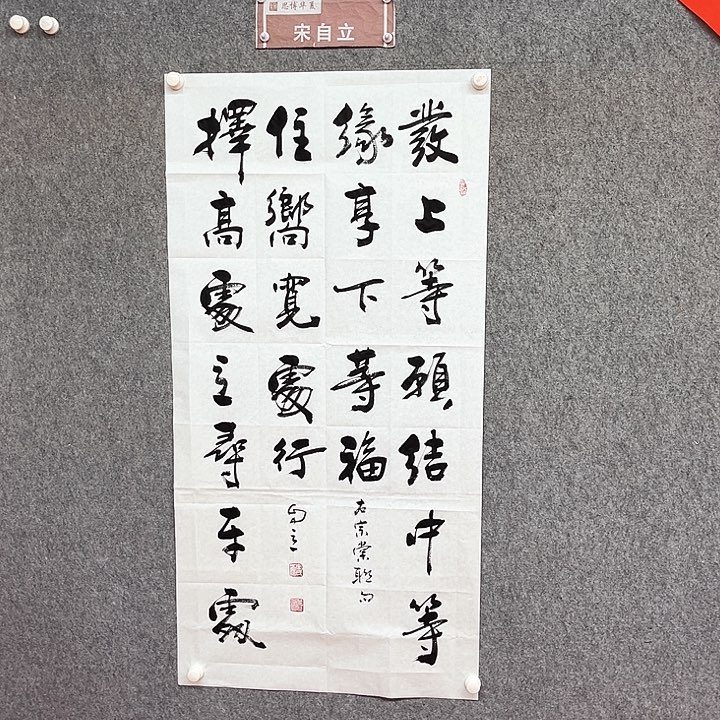 宋自立
發上等願結中等
緣享下等福
左宗棠聯句
擇高處立尋平處
住嚮寬處行
自立